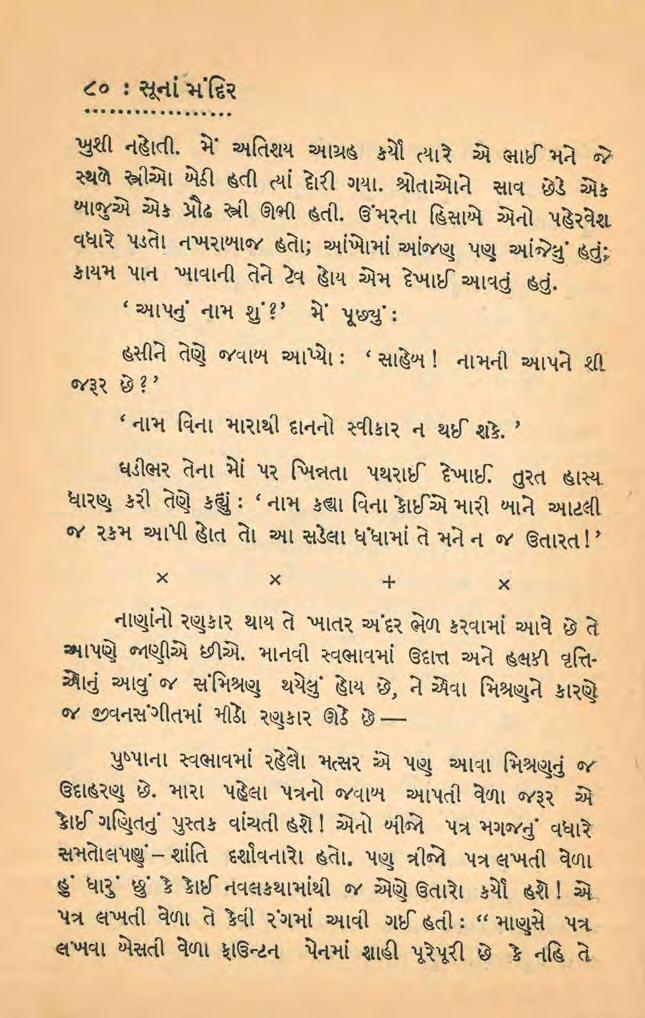 ૮૦ : સૂનાં મંદિર
ખુશી નહોતી. મેં અતિશય આગ્રહ કર્યો ત્યારે એ ભાઈ મને જે
સ્થળે સ્ત્રીઓ બેઠી હતી ત્યાં દોરી ગયા. શ્રોતાઓને સાવ છેડે એક
બાજુએ એક પ્રૌઢ સ્ત્રી ઊભી હતી. ઉંમરના હિસાબે એનો પહેરવેશ
વધારે પડતો નખરાબાજ હતો; આંખોમાં આંજણ પણ આંજેલું હતું;
કાયમ પાન ખાવાની તેને ટેવ હોય એમ દેખાઈ આવતું હતું.
‘ આપનું નામ શું?’ મેં પૂછ્યું :
હસીને તેણે જવાબ આપ્યો : ‘ સાહેબ ! નામની આપને શી
જરૂર છે ?’
‘ નામ વિના મારાથી દાનનો સ્વીકાર ન થઈ શકે. ’
ઘડીભર તેના મોં પર ખિન્નતા પથરાઈ દેખાઈ. તુરત હાસ્ય
ધારણ કરી તેણે કહ્યું : ‘ નામ કહ્યા વિના કોઈએ મારી બાને આટલી
જ રકમ આપી હોત તો આ સડેલા ધંધામાં તે મને ન જ ઉતારત!’
× × + ×
નાણાંનો રણકાર થાય તે ખાતર અંદર ભેળ કરવામાં આવે છે તે
આપણે જાણીએ છીએ. માનવી સ્વભાવમાં ઉદાત્ત અને હલકી વૃત્તિ-
ઓનું આવું જ સંમિશ્રણ થયેલું હોય છે, ને એવા મિશ્રણને કારણે
જ જીવનસંગીતમાં મીઠો રણકાર ઊઠે છે —
પુષ્પાના સ્વભાવમાં રહેલો મત્સર એ પણ આવા મિશ્રણનું જ
ઉદાહરણ છે. મારા પહેલા પત્રનો જવાબ આપતી વેળા જરૂર એ
કોઈ ગણિતનું પુસ્તક વાંચતી હશે ! એનો બીજો પત્ર મગજનું વધારે
સમતોલપણું – શાંતિ દર્શાવનારો હતો. પણ ત્રીજો પત્ર લખતી વેળા
હું ધારું છું કે કોઈ નવલકથામાંથી જ એણે ઉતારો કર્યો હશે ! એ
પત્ર લખતી વેળા તે કેવી રંગમાં આવી ગઈ હતી : “ માણસે પત્ર
લખવા બેસતી વેળા ફાઉન્ટન પેનમાં શાહી પૂરેપૂરી છે કે નહિ તે